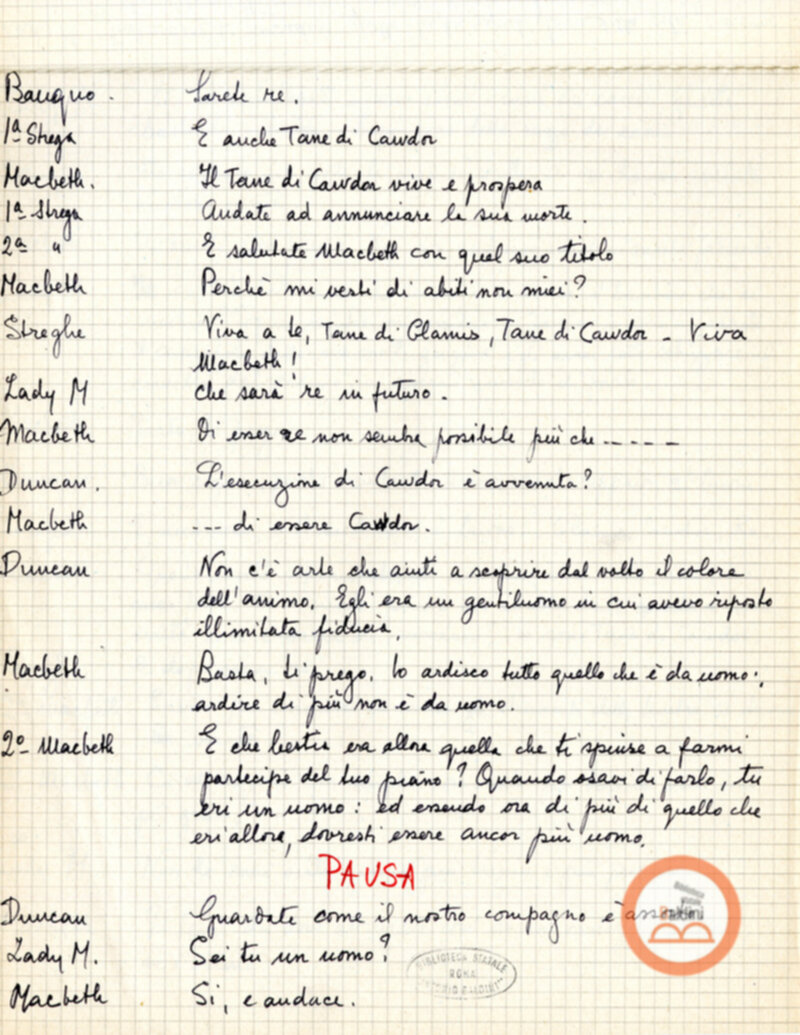 Banquo. Sarete re.
1ª Strega E anche Tane di Cawdor
Macbeth. Il Tane di Cawdor vive e prospera
1ª Strega Andate ad annunciare la sua morte.
2ª " E salutate Macbeth con quel suo titolo
Macbeth Perchè mi vesti di abiti non miei?
Streghe Viva a te, Tane di Glamis, Tane di Cawdor - Viva
Macbeth!
Lady M che sarà re in futuro.
Macbeth Di esser re non sembra possibile più che -----
Duncan. L'esecuzione di Cawdor è avvenuta?
Macbeth --- di essere Cawdor.
Duncan Non c'è arte che aiuti a scoprire dal volto il colore
dell'animo. Egli era un gentiluomo in cui avevo riposto
illimitata fiducia.
Macbeth Basta, ti prego. Io ardisco tutto quello che è da uomo:
ardire di più non è da uomo.
2º Macbeth E che bestia era allora quella che ti spinse a farmi
partecipe del tuo piano? Quando osavi di farlo, tu
eri un uomo: ed essendo ora di più di quello che
eri allora, dovresti essere ancor più uomo.
PAUSA
Duncan Guardate come il nostro compagno è
Lady M. Sei tu un uomo?
Macbeth Si, e audace.
BIBLIOTECA STATALE
ROMA
Biblioteca
statale
Baldini